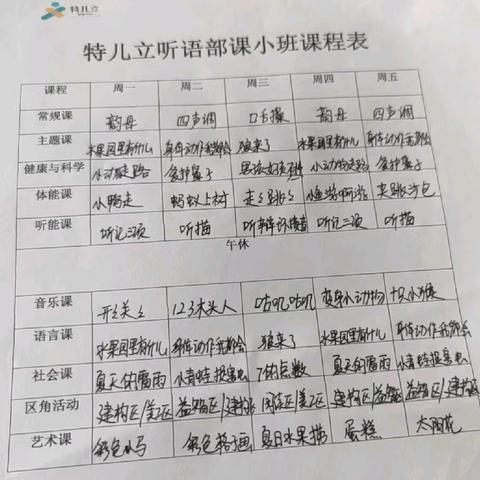 特儿立
特儿立听语部课小班课程表
课程 周一 周二 周三 周四 周五
常规课 韵母 四声调 口舌操 韵母 四声调
主题课 水果园里有什么 身体动作我都会 狼来了 水果园里有什么 身体动作我都会
健康与科学 小动物走路 保护鼻子 小动物走路 保护鼻子
体能课 小鸭走 蚂蚁上树 走走跳跳 小鱼游啊游 夹跳沙包
听能课 听记三项 听描 听辨环境音 听记三项 听描
午休
音乐课 开关 123木头人 咕叽咕叽 变身小动物 十只小猴
语言课 水果园里有什么 身体动作我都会 狼来了 水果园里有什么 身体动作我都会
社会课 夏天的雷雨 小青蛙捉害虫 7的点数 夏天的雷雨 小青蛙捉害虫
区角活动 建构区/美工区 益智区/建构区 阅读区/美工区 建构区/益智区 益智区/建构区
艺术课 彩色小马 彩色格子画 夏日水果 蛋糕 太阳花